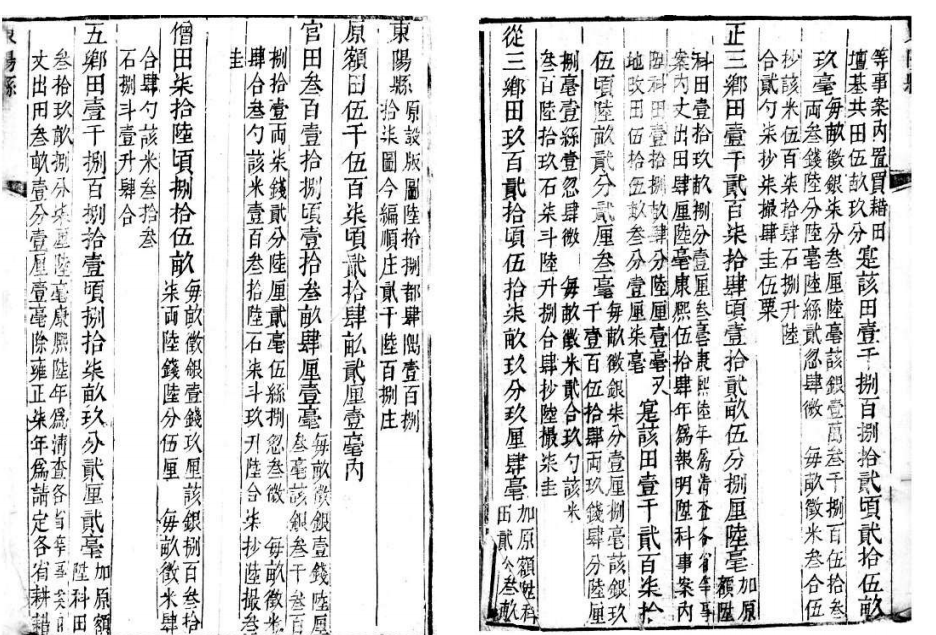 東陽縣
原設版圖陸拾捌都肆隅壹百捌
拾柒圖今編順庄貳千陸百捌庄
原額田伍千伍百柒頃貳拾肆畝貳厘壹毫內
官田叁百壹拾捌頃壹拾叁畝肆厘壹毫
每畝徵銀壹錢陸厘
叁毫該銀叁千叁百
捌拾壹兩柒錢貳分陸厘貳毫伍絲捌忽叁微 每畝徵米
肆合叁勺該米壹百叁拾陸石柒斗玖升陸合柒抄陸撮叁
圭
僧田柒拾陸頃捌拾伍畝
每畝徵銀壹錢玖厘該銀捌百叁拾
柒兩陸錢陸分伍厘 每畝徵米肆
合肆勺該米叁拾叁
石捌斗壹升肆合
五鄉田壹千捌百捌拾壹頃捌拾柒畝玖分貳厘貳毫
加原額
陞科田
叁拾玖畝捌分柒厘陸毫康熙陸年爲清查各省等事案內
丈出田叁畝壹分壹厘壹毫雍正柒年爲請定各省耕耤
等事案內置買耤田
壇基共田伍畝玖分
寔該田壹千捌百捌拾貳頃貳拾伍畝
玖毫
每畝徵銀柒分叁厘陸毫該銀壹萬叁千捌百伍拾叁
兩叁錢陸分陸毫陸絲貳忽肆微 每畝徵米叁合伍
抄該米伍百柒拾肆石捌升陸
合貳勺柒抄柒撮肆圭伍粟
正三鄉田壹千貳百柒拾肆頃壹拾貳畝伍分捌厘陸毫
加原
額陞
科田壹拾玖畝捌分壹厘叁毫康熙陸年爲清查各省等事
案內丈出田肆厘陸毫康熙伍拾肆年爲報明陞科事案內
陞科田壹拾捌畝肆分陸厘壹毫又
地改田伍拾伍畝叁分壹厘柒毫
寔該田壹千貳百柒拾
伍頃陸畝貳分貳厘叁毫
每畝徵銀柒分壹厘捌毫該銀玖
千壹百伍拾肆兩玖錢肆分陸厘
捌毫壹絲壹忽肆微 每畝徵米貳合玖勺該米
叁百陸拾玖石柒斗陸升捌合肆抄陸撮柒圭
從三鄉田玖百貳拾頃伍拾柒畝玖分玖厘肆毫
加原額陞科
田貳分叁畝